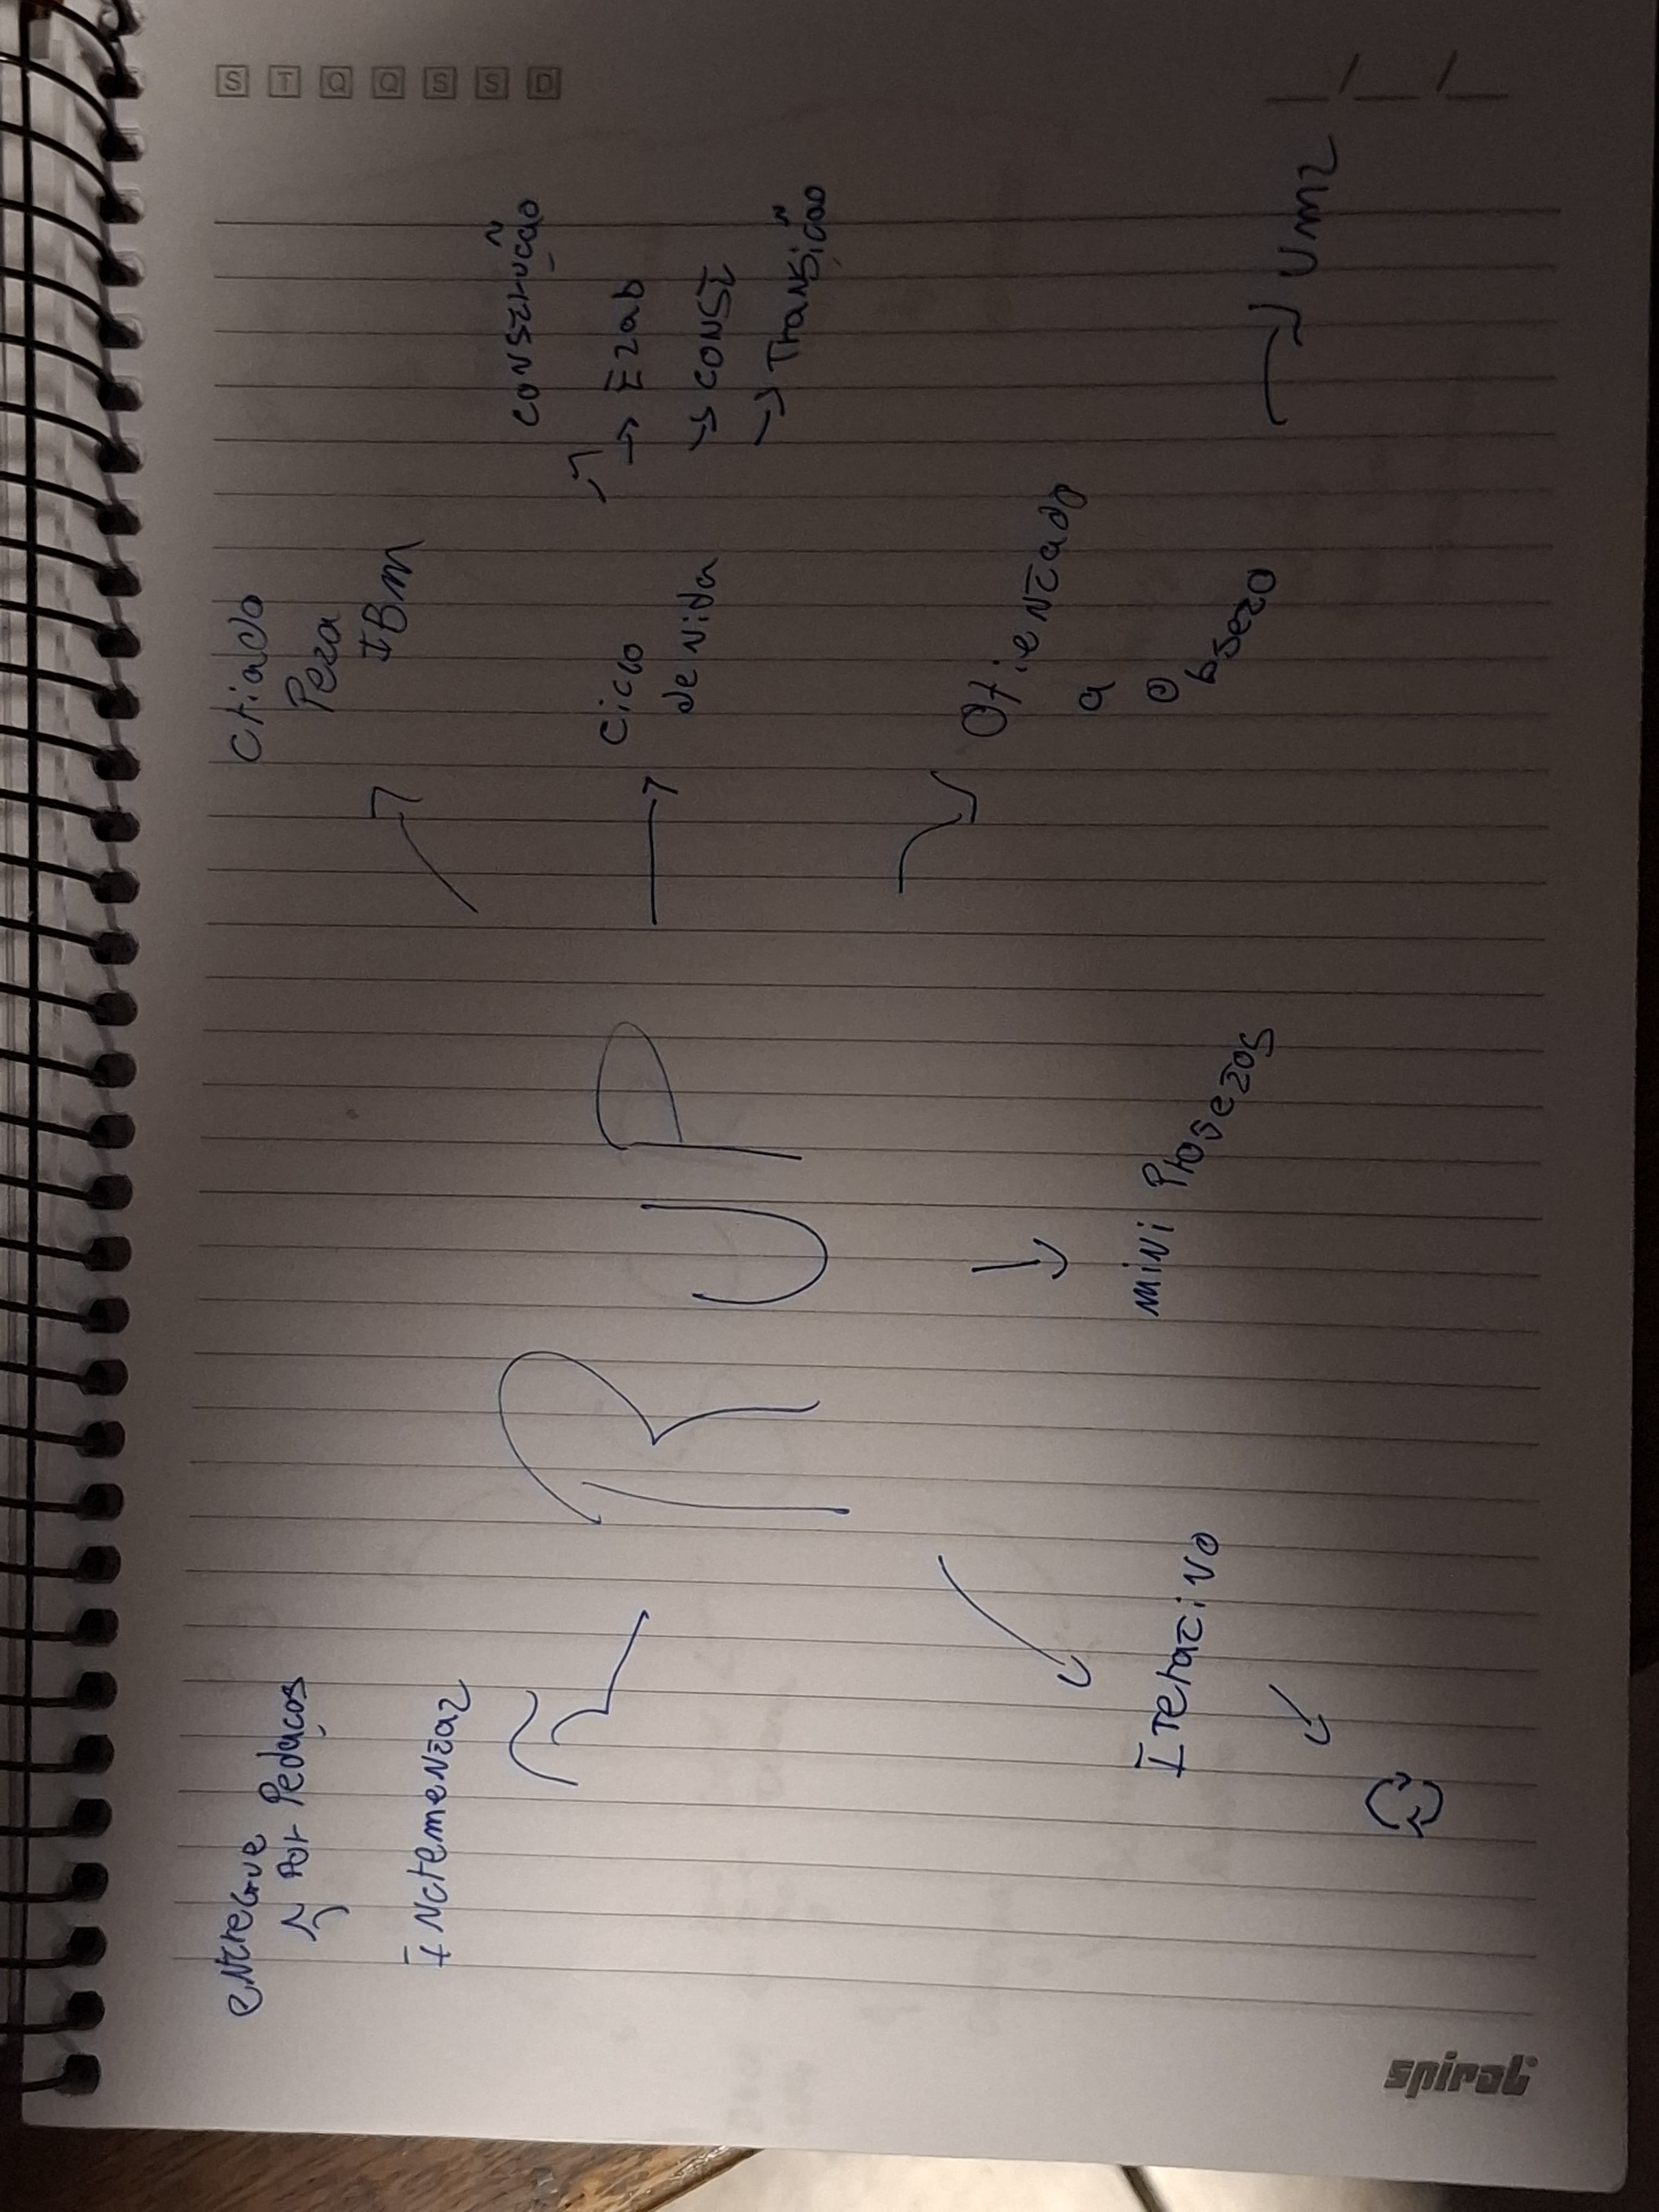 S T Q Q S S D
__/__/__
entregue
por Pedaços
Incremental
RUP
Criado
Pela
IBM
Ciclo
de vida
construção
Elab
const
Transição
Orientado
a
Objeto
UML
mini Projetos
Iterativo
spiral